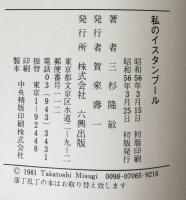 私のイスタンブール
昭和56年3月15日 初版印刷
昭和56年3月25日 初版発行
著者 三杉隆敏
発行者 賀來壽一
発行所 株式会社 六興出版
東京都文京区水道二ー九ー二
郵便番号 一一二
電話03(943)3431
振替 東京1ー92448
印刷 製本 中央精版印刷株式会社
© 1981 Takatoshi Misugi 0098-07065-9216
落丁乱丁の本はお取り替え致します